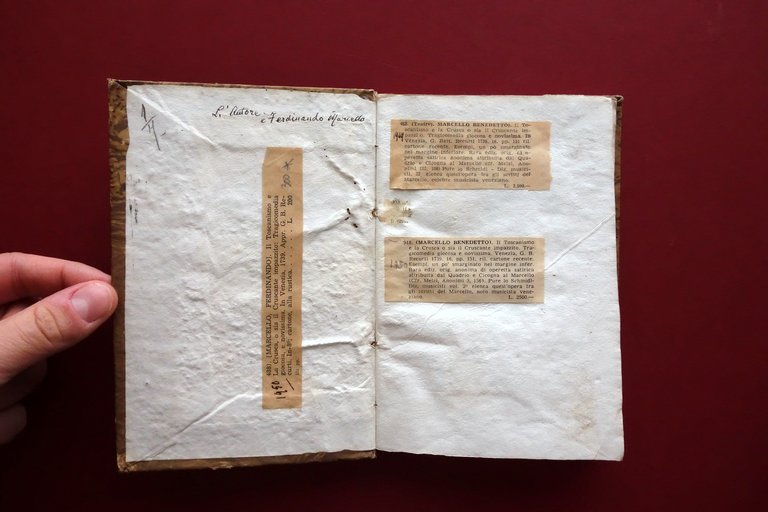 L'Autore
è Ferdinando Marcello
200
433) [MARCELLO, FERDINANDO]. Il Toscanismo e
La Crusca, o sia il Cruscante impazzito: Tragicomedia
giocosa, e novissima. In Venezia, 1739, Appr. G. B. Re-
curti. In-8°; cartone, alla rustica. . . . L. 200
1950
(Teatro). MARCELLO BENEDETTO). Il To-
scanismo e la Crusca o sia il Cruscante im-
pazzito. Tragicomedia giocosa e novissima. In
Venezia, G. Batt. Recurti 1739, 16, pp. 151 ril.
cartone recente. Esempl. un pò smarginato
nel margine inferiore. Rara ediz. orig. di o-
peretta satirica anonima attribuita dal Qua-
drio e Cicogna al Marcello (cfr. Melzi, Anoni-
mi III, 156) Pure lo Schmidl - Diz. musici-
sti, II elenca quest'opera tra gli scritti del
Marcello, celebre musicista veneziano.
L. 2.500.—
(MARCELLO BENEDETTO). Il Toscanismo
e la Crusca o sia il Cruscante impazzito. Tra-
gicomedia giocosa e novissima. Venezia, G. B.
Recurti 1739, 16, pp. 151, ril. cartone recente.
Esempl. un po' smarginato nel margine inferiore.
Rara ediz. orig. anonima di operetta satirica
attribuita dal Quadrio e Cicogna al Marcello
(Cfr. Melzi, Anonimi 3, 156). Pure lo Schmidl-
Diz. musicisti vol 2° elenca quest'opera tra
gli scritti del Marcello, noto musicista vene-
ziano.
L. 2500.—